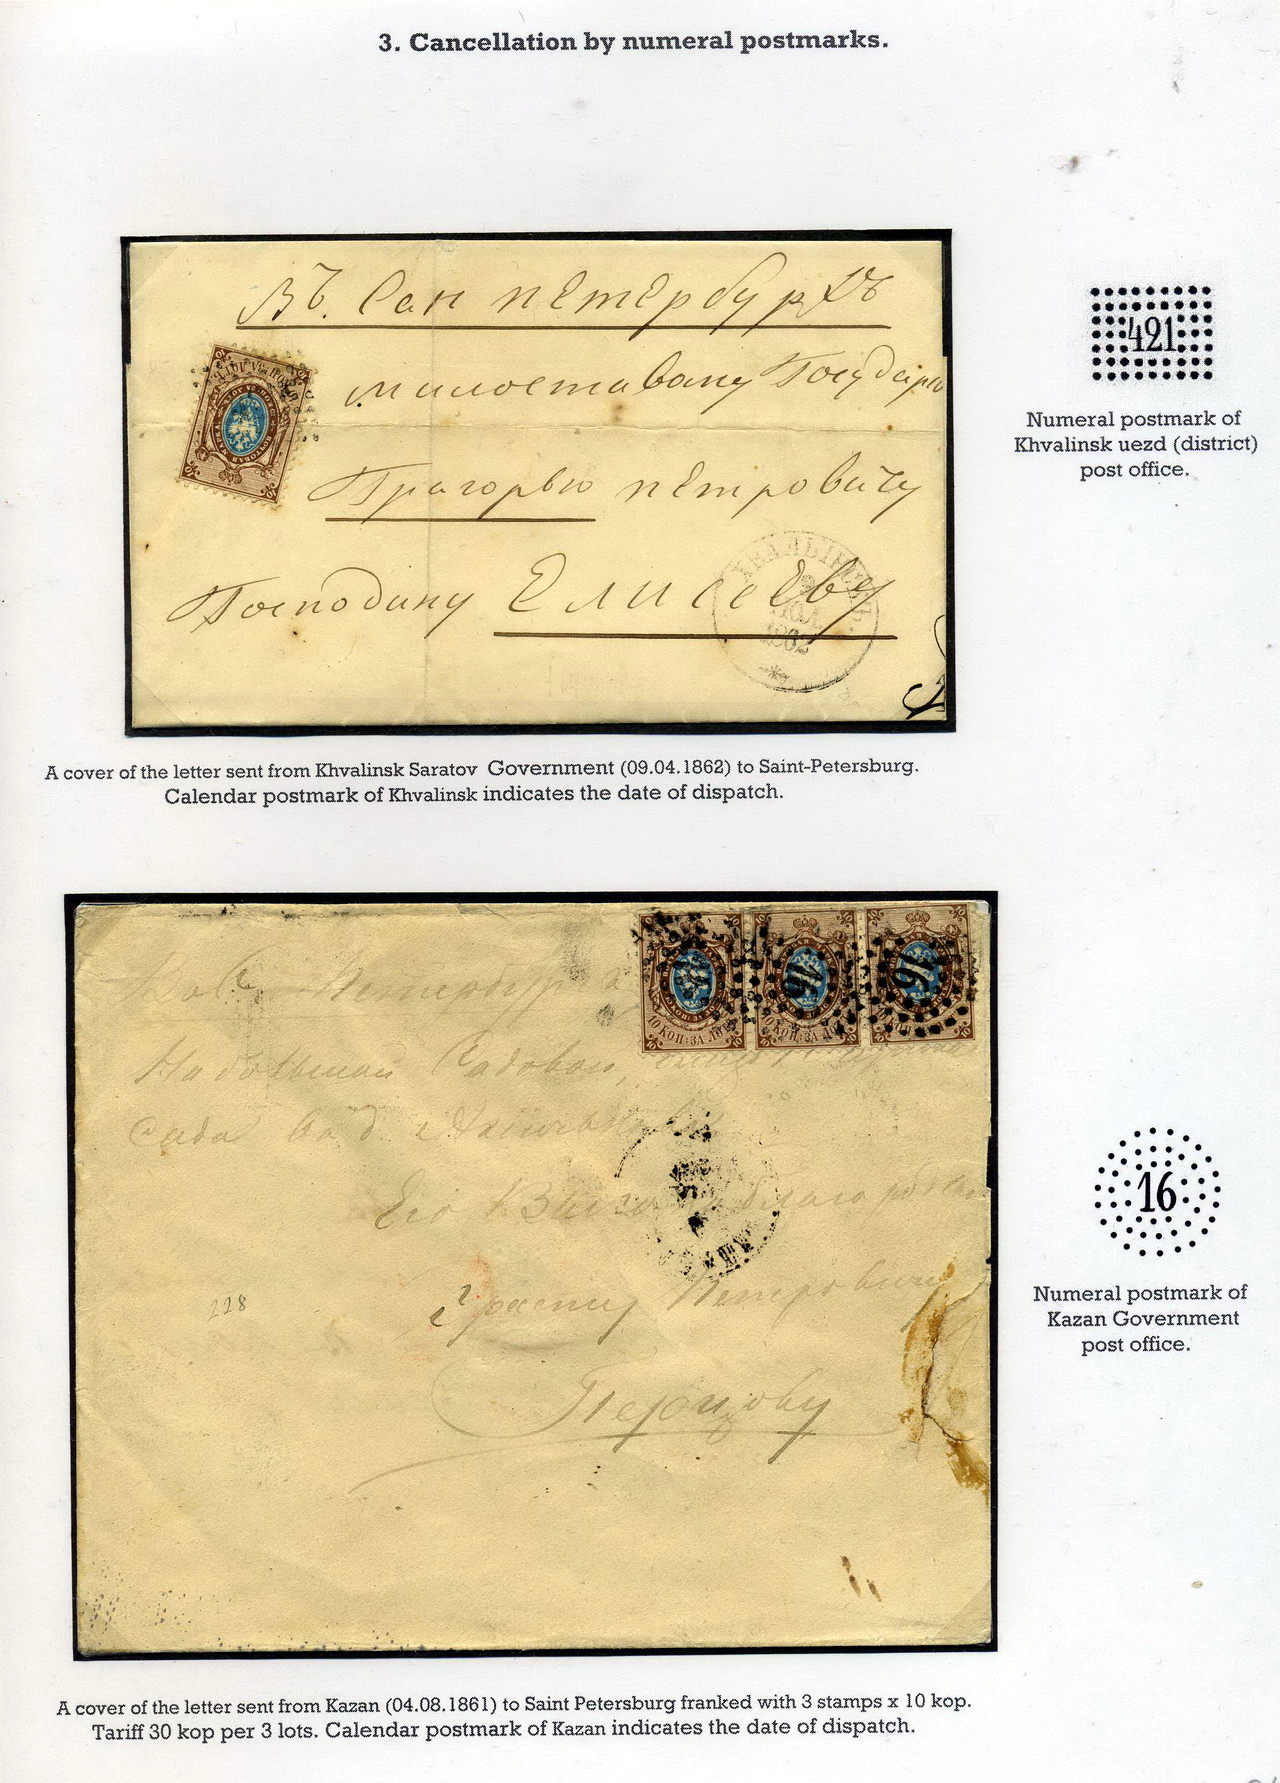 3. Cancellation by numeral postmarks.
Въ. Сан петербургъ
милоставому Государю
Грагорью петровичу
Господину Елисѣеву
ХВАЛЫНСКЪ
9
1862
421
Numeral postmark of
Khvalinsk uezd (district)
post office.
A cover of the letter sent from Khvalinsk Saratov Government (09.04.1862) to Saint-Petersburg.
Calendar postmark of Khvalinsk indicates the date of dispatch.
10 КОП: ЗА ЛОТЪ
10 КОП: ЗА
16
16
Петербург
Садовой
Сада
Его
Петровичу
Перцову
228
16
Numeral postmark of
Kazan Government
post office.
A cover of the letter sent from Kazan (04.08.1861) to Saint Petersburg franked with 3 stamps x 10 kop.
Tariff 30 kop per 3 lots. Calendar postmark of Kazan indicates the date of dispatch.